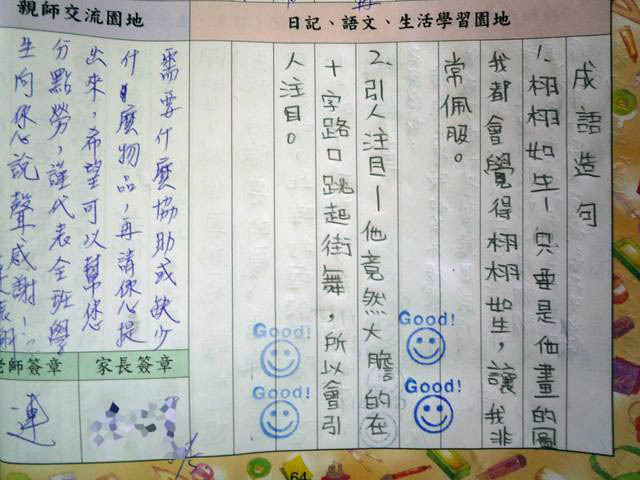 日記、語文、生活學習園地
成語造句
1.栩栩如生—只要是他畫的圖
我都會覺得栩栩如生，讓我非
常佩服。
2.引人注目—他竟然大膽的在
十字路口跳起街舞，所以會引
人注目。
Good!
Good!
Good!
Good!
親師交流園地
需要什麼協助或缺少
什麼物品，再請您提
出來，希望可以幫您
分點勞，謹代表全班學
生向您說聲感謝！
家長簽章
老師簽章
連
64